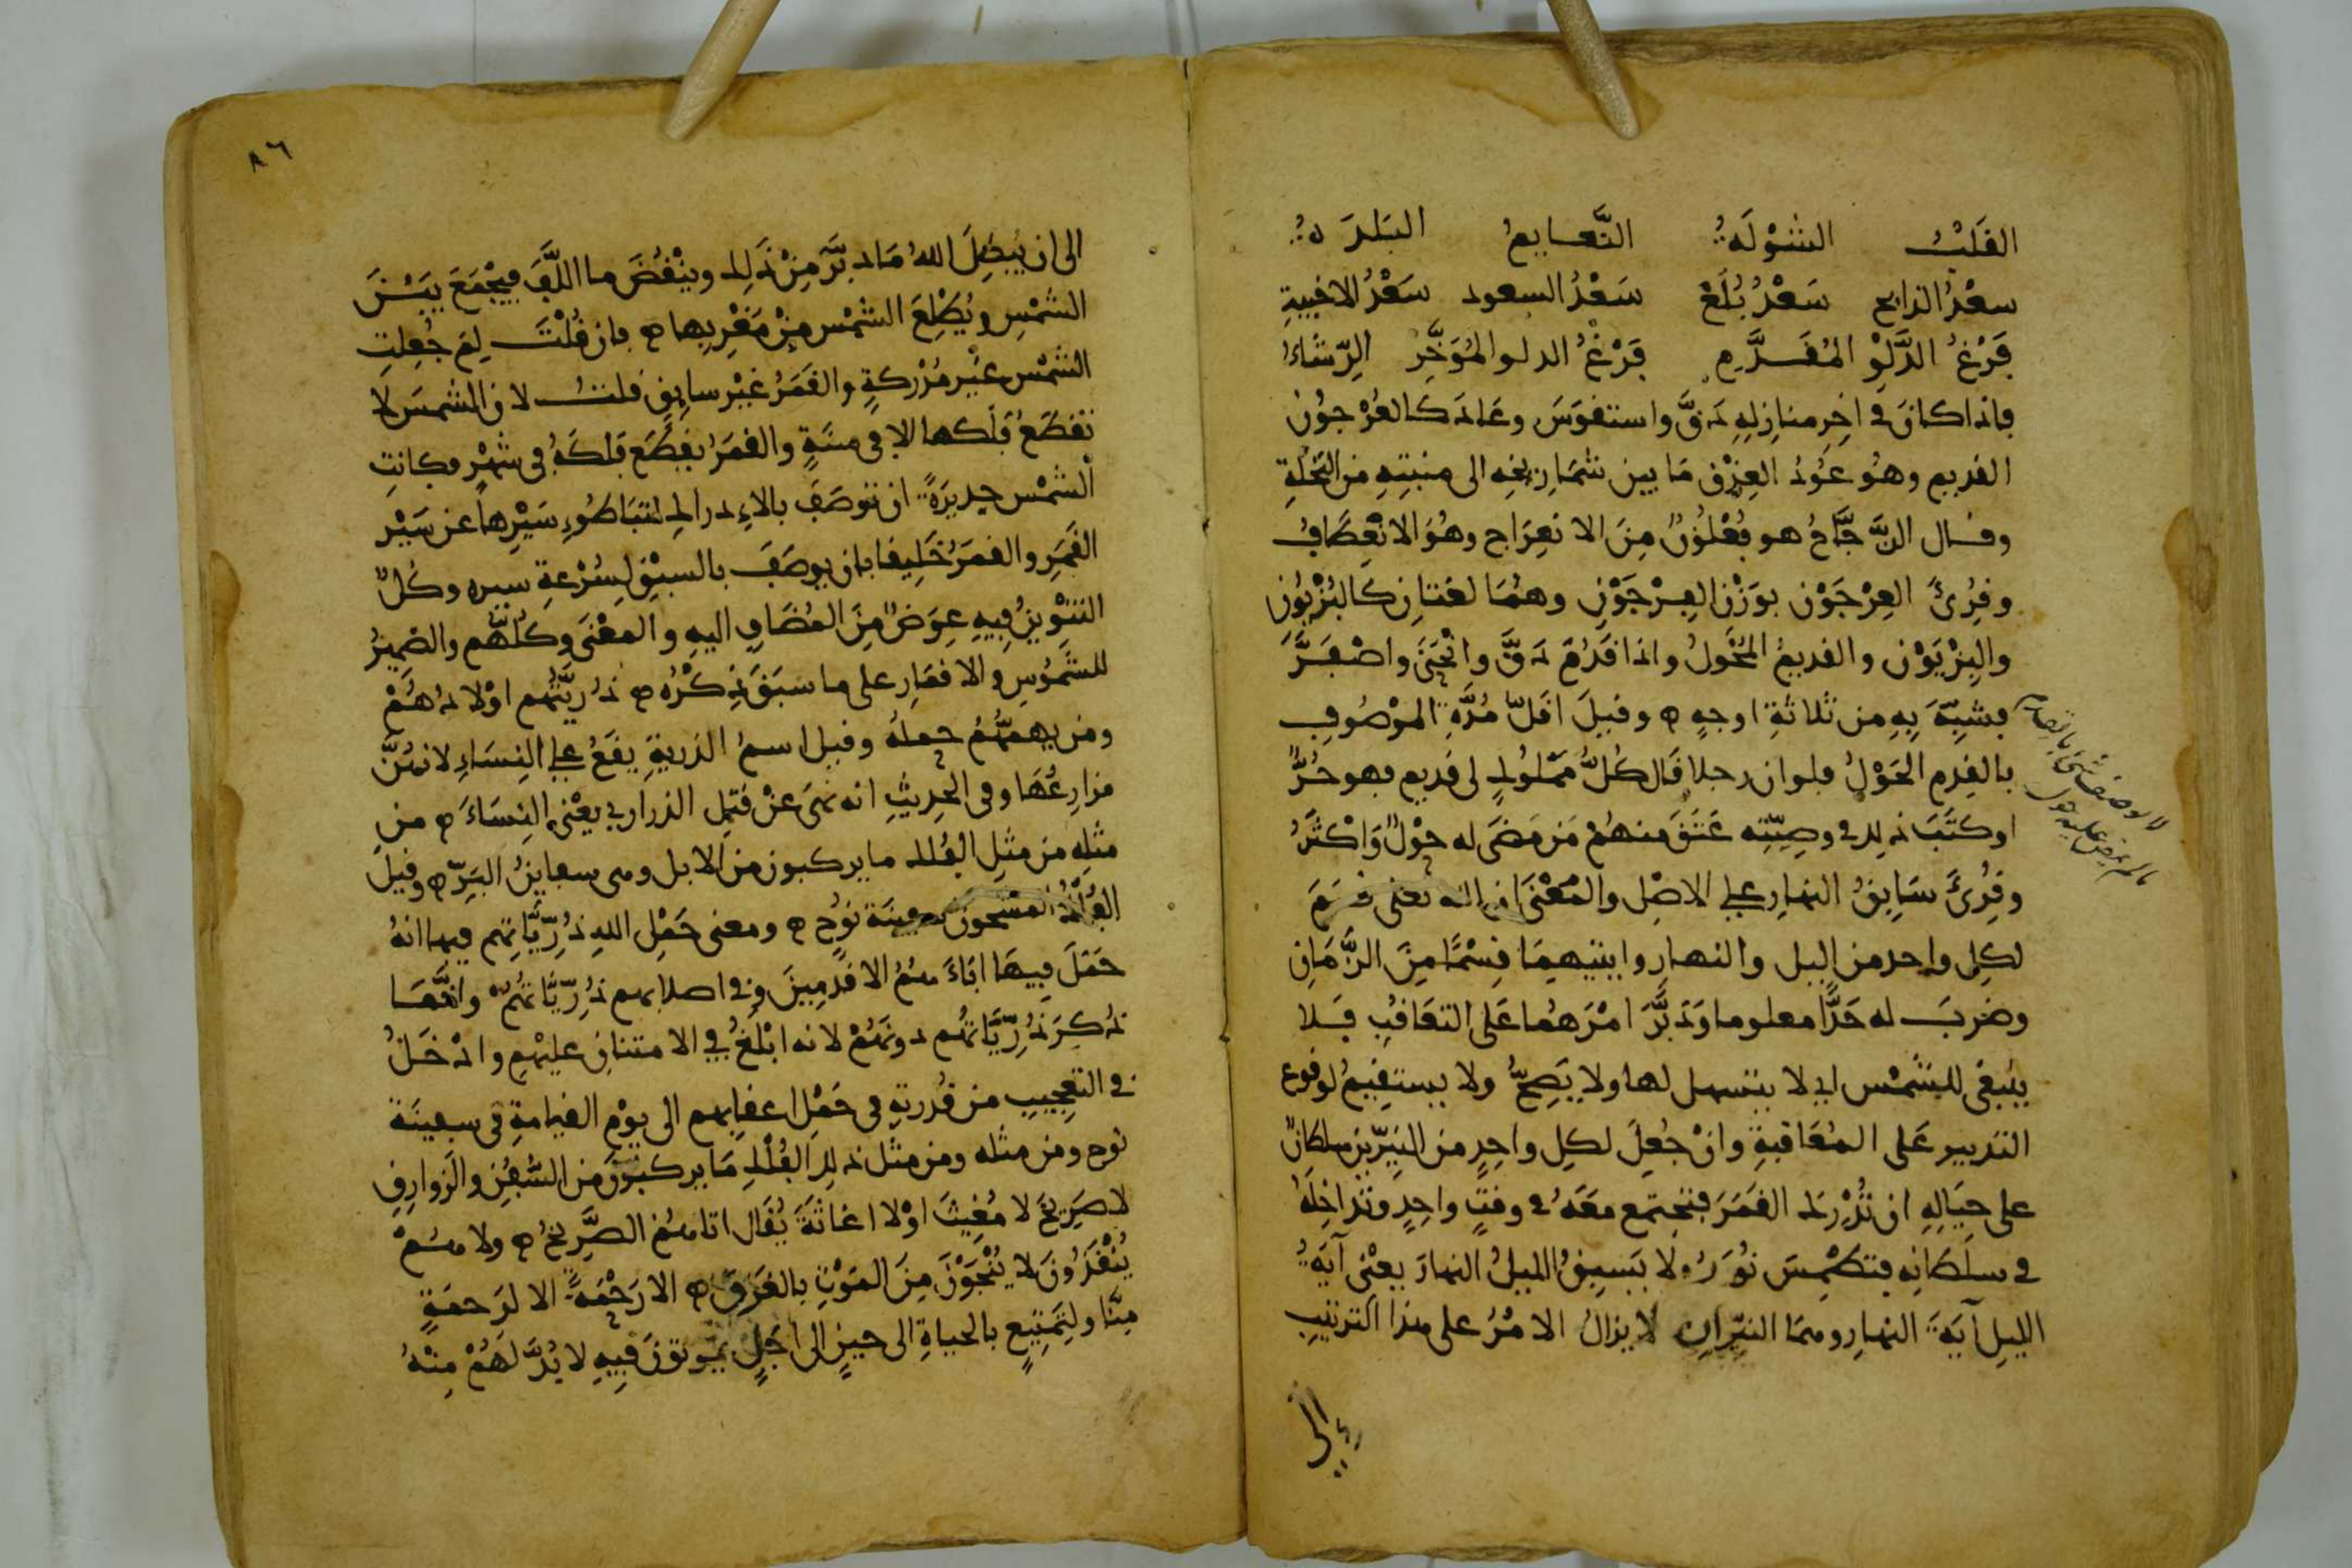 القَلْبُ الشَوْلَةُ النَّعَايِمُ البَلْدَةُ
سعْدُ الذابح سَعْدُ بُلَعَ سَعْدُ السعود سَعْدُ الاخبيةِ
فَرْغُ الدَّلْوِ المُقَدَّمِ فَرْغُ الدلو المُوَخَّرُ الرِّشَاءُ
فاذا كانَ في اخِرِ منازِلهِ دَقَّ واستقوَسَ وعَادَ كالعُرْجُونِ
القديم وهُو عُودُ العِذْقِ مَا بين شمَارِيخِهِ الى منبتِهِ من النخْلَةِ
وقال الزَّجَّاجُ هو فُعْلُونٌ مِنَ الانعِرَاجِ وهُوَ الانْعِطَافُ
وقُرِئَ العِرْجَوْنِ بوَزْنِ الفِرْجَوْنِ وهُمَا لغتانِ كالبُزْيُونِ
والبِزْيَوْنِ والقديمُ المُحْوِلُ واذا قَدُمَ دَقَّ وانْحَنَى واصْفَرَّ
فشُبِّهَ بِهِ من ثلاثةِ اوجهٍ وقيلَ اقَلّ مُدَّةِ الموْصُوفِ
بالقِدَمِ الحَوْلُ فلو ان رجلا قال كُلُّ مَمْلُوكٍ لي قديم فهو حُرٌّ
اوكتَبَ ذلك في وصِيّتِه عَتَقَ منهُمْ مَن مَضَى له حوْلٌ وَاكْثَرُ
وقُرِئَ سَابِقُ النهارِ على الاصْلِ والمَعْنَى ان الله تعلى قسَمَ
لكل واحد من اليل والنهارِ وايتيهِمَا قِسْمًا مِنَ الزَّمَانِ
وضربَ له حَدًّا معلوما وَدَبَّرَ امْرَهُما عَلى التعَاقُبِ فَلا
ينبغى للشَمْس اي لا يتسهل لها ولا يَصِحُّ ولا يستقِيمُ لوقوع
التدبير عَلى المُعَاقبةِ وانْ جُعِلَ لكل واحِدٍ من النيّريْن سلطانٌ
على حِيَالِهِ ان تُدْرِكَ القَمَرَ فتجتمع معَهُ في وقتٍ واحِدٍ وتُدَاخِلَهُ
في سلطَانِهِ فتطْمِسَ نُورَهُ ولا يَسبِقُ الليلُ النهارَ يعْنِى آيَةُ
الليلِ آيَةَ النهارِ وهما النيّرانِ لا يزالُ الامْرُ على هذا الترتيبِ
إلى
٨٦
الى ان يُبْطِلَ اللهُ مَا دبَّرَ مِنْ ذَلِكَ وينْقُضَ ما اللَّفَ فيَجْمَعَ بَيْنَ
الشمْسِ ويُطْلِعَ الشمْس مِنْ مَغْرِبِها فان قُلْتَ لِمَ جُعِلتِ
الشمْس غيْر مُدْركةٍ والقَمَرُ غيْر سابِقٍ قلتُ لان الشمسَ لا
تقطَعُ فلكها الا في سَنةٍ والقمَرُ يقطَع فلكَهُ في شهْرٍ فكانتِ
الشمْس جديرَةً ان توصَفَ بالادراك لتبَاطُوءِ سَيْرِها عن سَيْرِ
القَمَرِ والقمَرُ خَلِيقا بان يوصَفَ بالسبْقِ لسُرْعةِ سيره وكُلٌّ
التنْوِينُ فيهِ عِوَضٌ مِنَ المُضَافِ اليهِ والمَعْنَى وكلهم والضميرُ
للشُمُوسِ والاقمَارِ على ما سبَقَ ذِكْرُه ذُرِيَّتُهم اوْلادُهُمْ
ومن يهمُّهُمْ حملهُ وقيل اسمُ الذريةِ يقَعُ على النِسَاءِ لانهُنَّ
مزارِعُهَا وفي الحديثِ انه نهَى عَنْ قَتلِ الذراري يعْنى النِسَاءَ مِن
مثلهِ من مثلِ الفلك ما يركبون من الابل وهى سفاين البَرِّ وقيل
الفُلْكُ المشحون سفينَة نوُحٍ ومعنى حَمْل الله ذُرِّيَّاتِهم فيها انهُ
حَمَلَ فِيهَا ابَاءَ هُمُ الاقْدمِينَ وفي اصلابهم ذُرِّيَّاتهُمْ وانَّمَا
ذُكِرَ ذُرِّيَّاتُهم دونَهُمْ لانه ابْلَغُ في الامتنانِ عليْهِم وادْخَلُ
في التعجيبِ من قُدرتهِ في حَمْل اعقابِهم الى يوْم القيامةِ في سفينَة
نوح ومن مثله ومن مثل ذلك الفُلْكِ مَا يركبُونَ من السُفُنِ والزوارِقِ
لا صَرِيخَ لا مُغِيثَ اوْلا اغاثَةَ يُقَال اتاهُمُ الصَّرِيخُ ولا هُمْ
يُنْقَذُونَ لا يُنْجَوْنَ مِنَ المَوْتِ بالغَرَقِ الا رَحْمَةً الا لرَحمَةٍ
مِنَّا ولتَمتِيعٍ بالحياةِ الى حينٍ الى اجَلٍ يموتونَ فِيهِ لا بُدَّ لهُمْ مِنْهُ